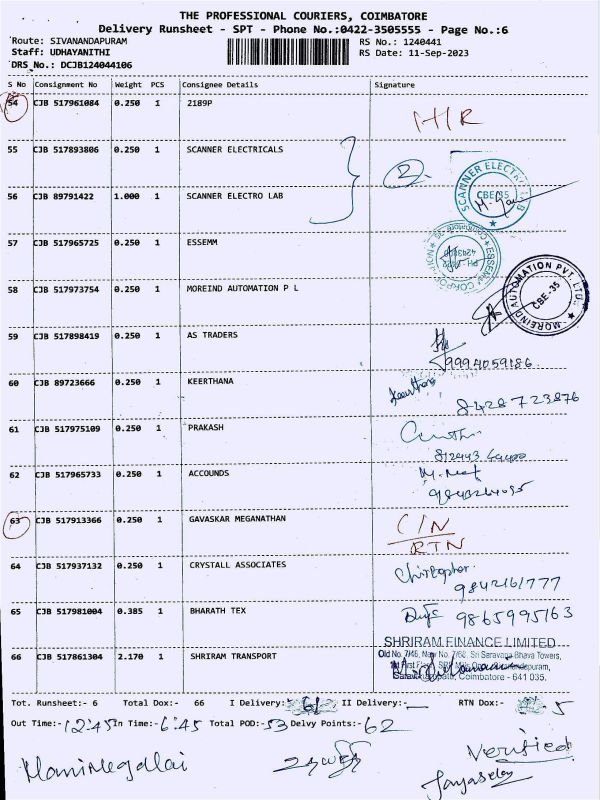 THE PROFESSIONAL COURIERS, COIMBATORE
Delivery Runsheet - SPT - Phone No.:0422-3505555 - Page No.:6
Route: SIVANANDAPURAM RS No.: 1240441
Staff: UDHAYANITHI RS Date: 11-Sep-2023
DRS No.: DCJB124044106
S No Consignment No Weight PCS Consignee Details Signature
54 CJB 517961084 0.250 1 2189P H/R
55 CJB 517893806 0.250 1 SCANNER ELECTRICALS 2
56 CJB 89791422 1.000 1 SCANNER ELECTRO LAB SCANNER ELECTRO LAB CBE-35
57 CJB 517965725 0.250 1 ESSEMM ESSEMM CORPORATION
58 CJB 517973754 0.250 1 MOREIND AUTOMATION P L MOREIND AUTOMATION PVT. LTD. CBE-35
59 CJB 517898419 0.250 1 AS TRADERS 9994059186
60 CJB 89723666 0.250 1 KEERTHANA Keerthana 8428723876
61 CJB 517975109 0.250 1 PRAKASH
62 CJB 517965733 0.250 1 ACCOUNDS
63 CJB 517913366 0.250 1 GAVASKAR MEGANATHAN C/N
RTN
64 CJB 517937132 0.250 1 CRYSTALL ASSOCIATES 9842161777
65 CJB 517981004 0.385 1 BHARATH TEX 9865995163
SHRIRAM FINANCE LIMITED
66 CJB 517861304 2.170 1 SHRIRAM TRANSPORT Old No. 7/46, New No. 7/68, Sri Saravana Bhava Towers,
1st First Floor,
Coimbatore - 641 035.
Tot. Runsheet:- 6 Total Dox:- 66 I Delivery:- 61 II Delivery:- RTN Dox:- 5
Out Time:- 12.45 In Time:- 6.45 Total POD:- 53 Delvy Points:- 62
Manimegalai Verified